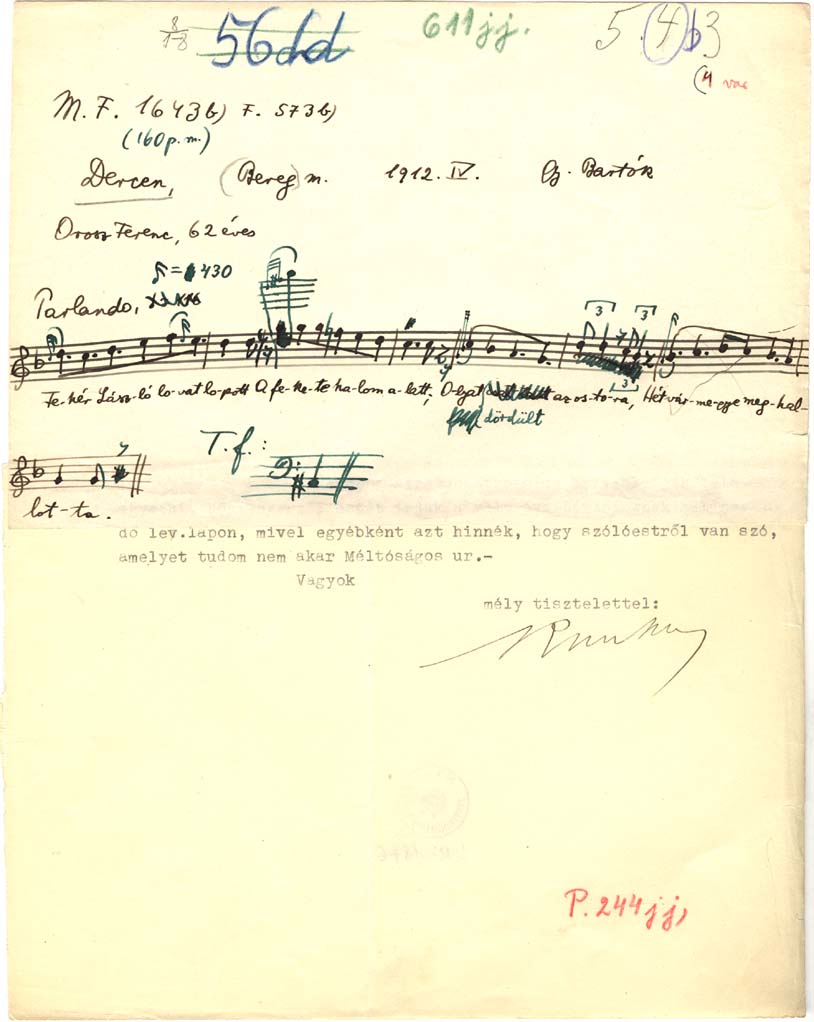 8
1-8
56dd
611jj.
5. 4 b 3
(4 var
M. F. 1643b) F. 573b)
(160 p. m.)
Dercen, (Bereg) m. 1912. IV. Gy. Bartók
Orosz Ferenc, 62 éves
=430
Parlando,
3 3
Fe-hér Lász-ló lo-vat lo-pott A fe-ke-te ha-lom a-latt; Ol-gat az os-to-ra, Hét vár-me-gye meg-hal-
3
dördült
T. f. :
lot-ta.
do lev.lapon, mivel egyébként azt hinnék, hogy szólóestről van szó,
amelyet tudom nem akar Méltóságos ur.-
Vagyok
mély tisztelettel:
P. 244jj)